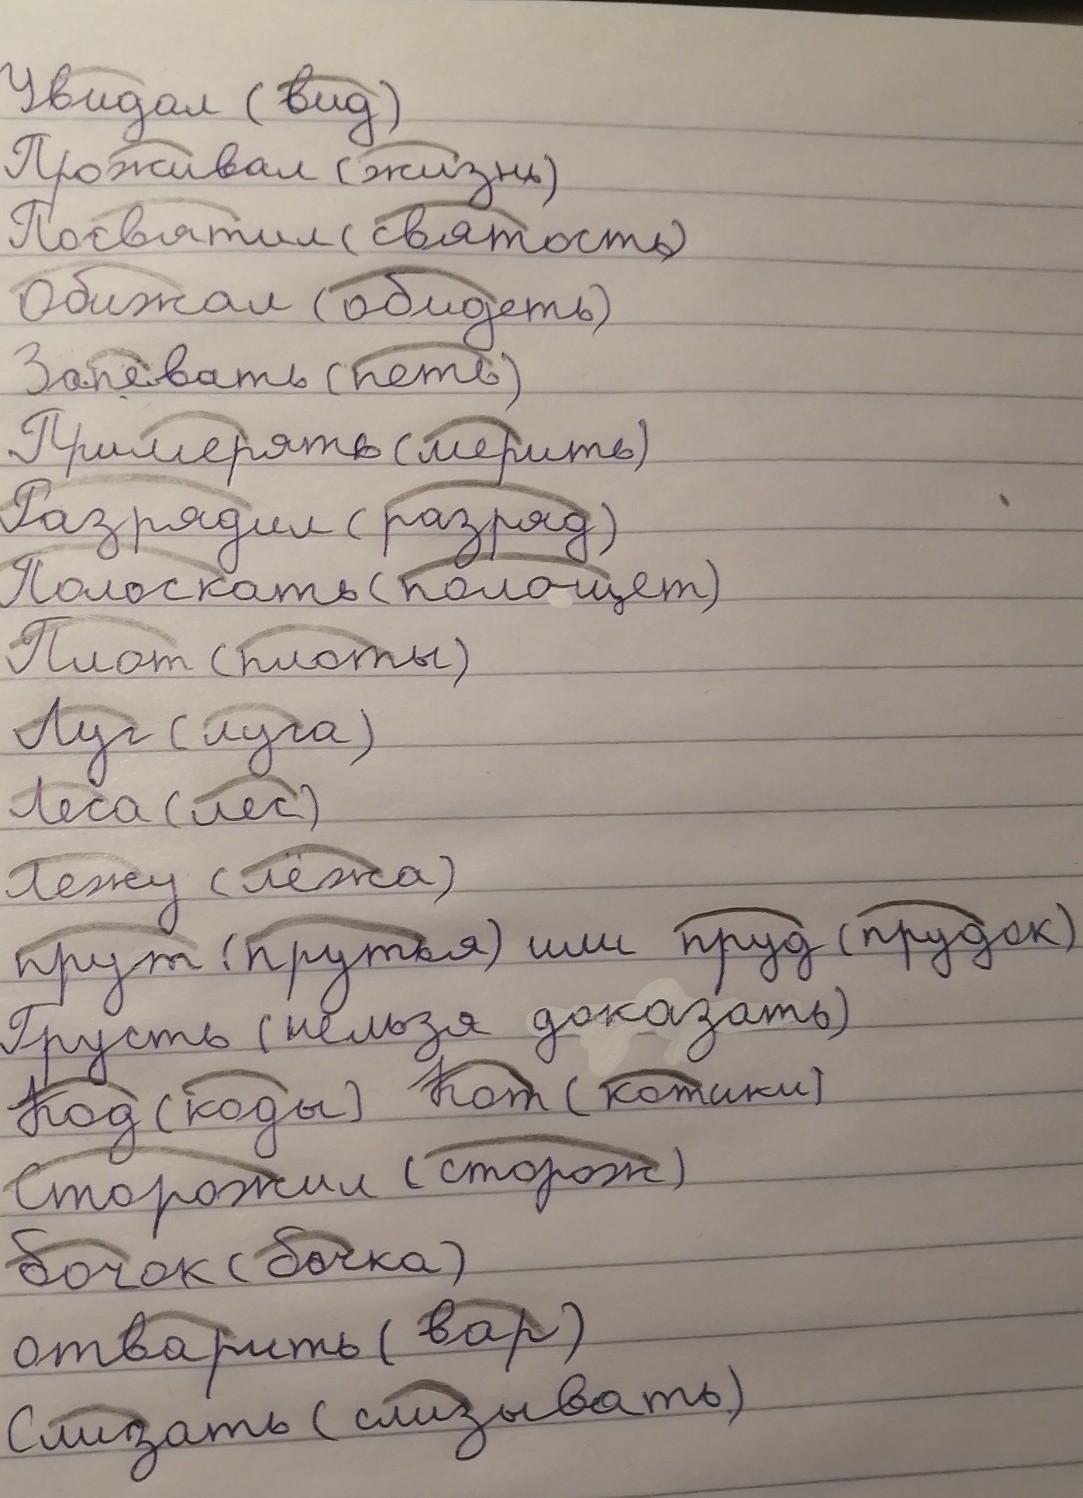 Увидал (вид)
Проживал (жизнь)
Посвятил (святость)
Обижал (обидеть)
Запевать (петь)
Примерять (мерить)
Разрядил (разряд)
Полоскать (полощет)
Плот (плоты)
Луг (луга)
Леса (лес)
Лежу (лёжа)
прут (прутья) или пруд (прудок)
Грусть (нельзя доказать)
Код (коды) Кот (котики)
Сторожил (сторож)
бочок (бочка)
отварить (вар)
Слизать (слизывать)